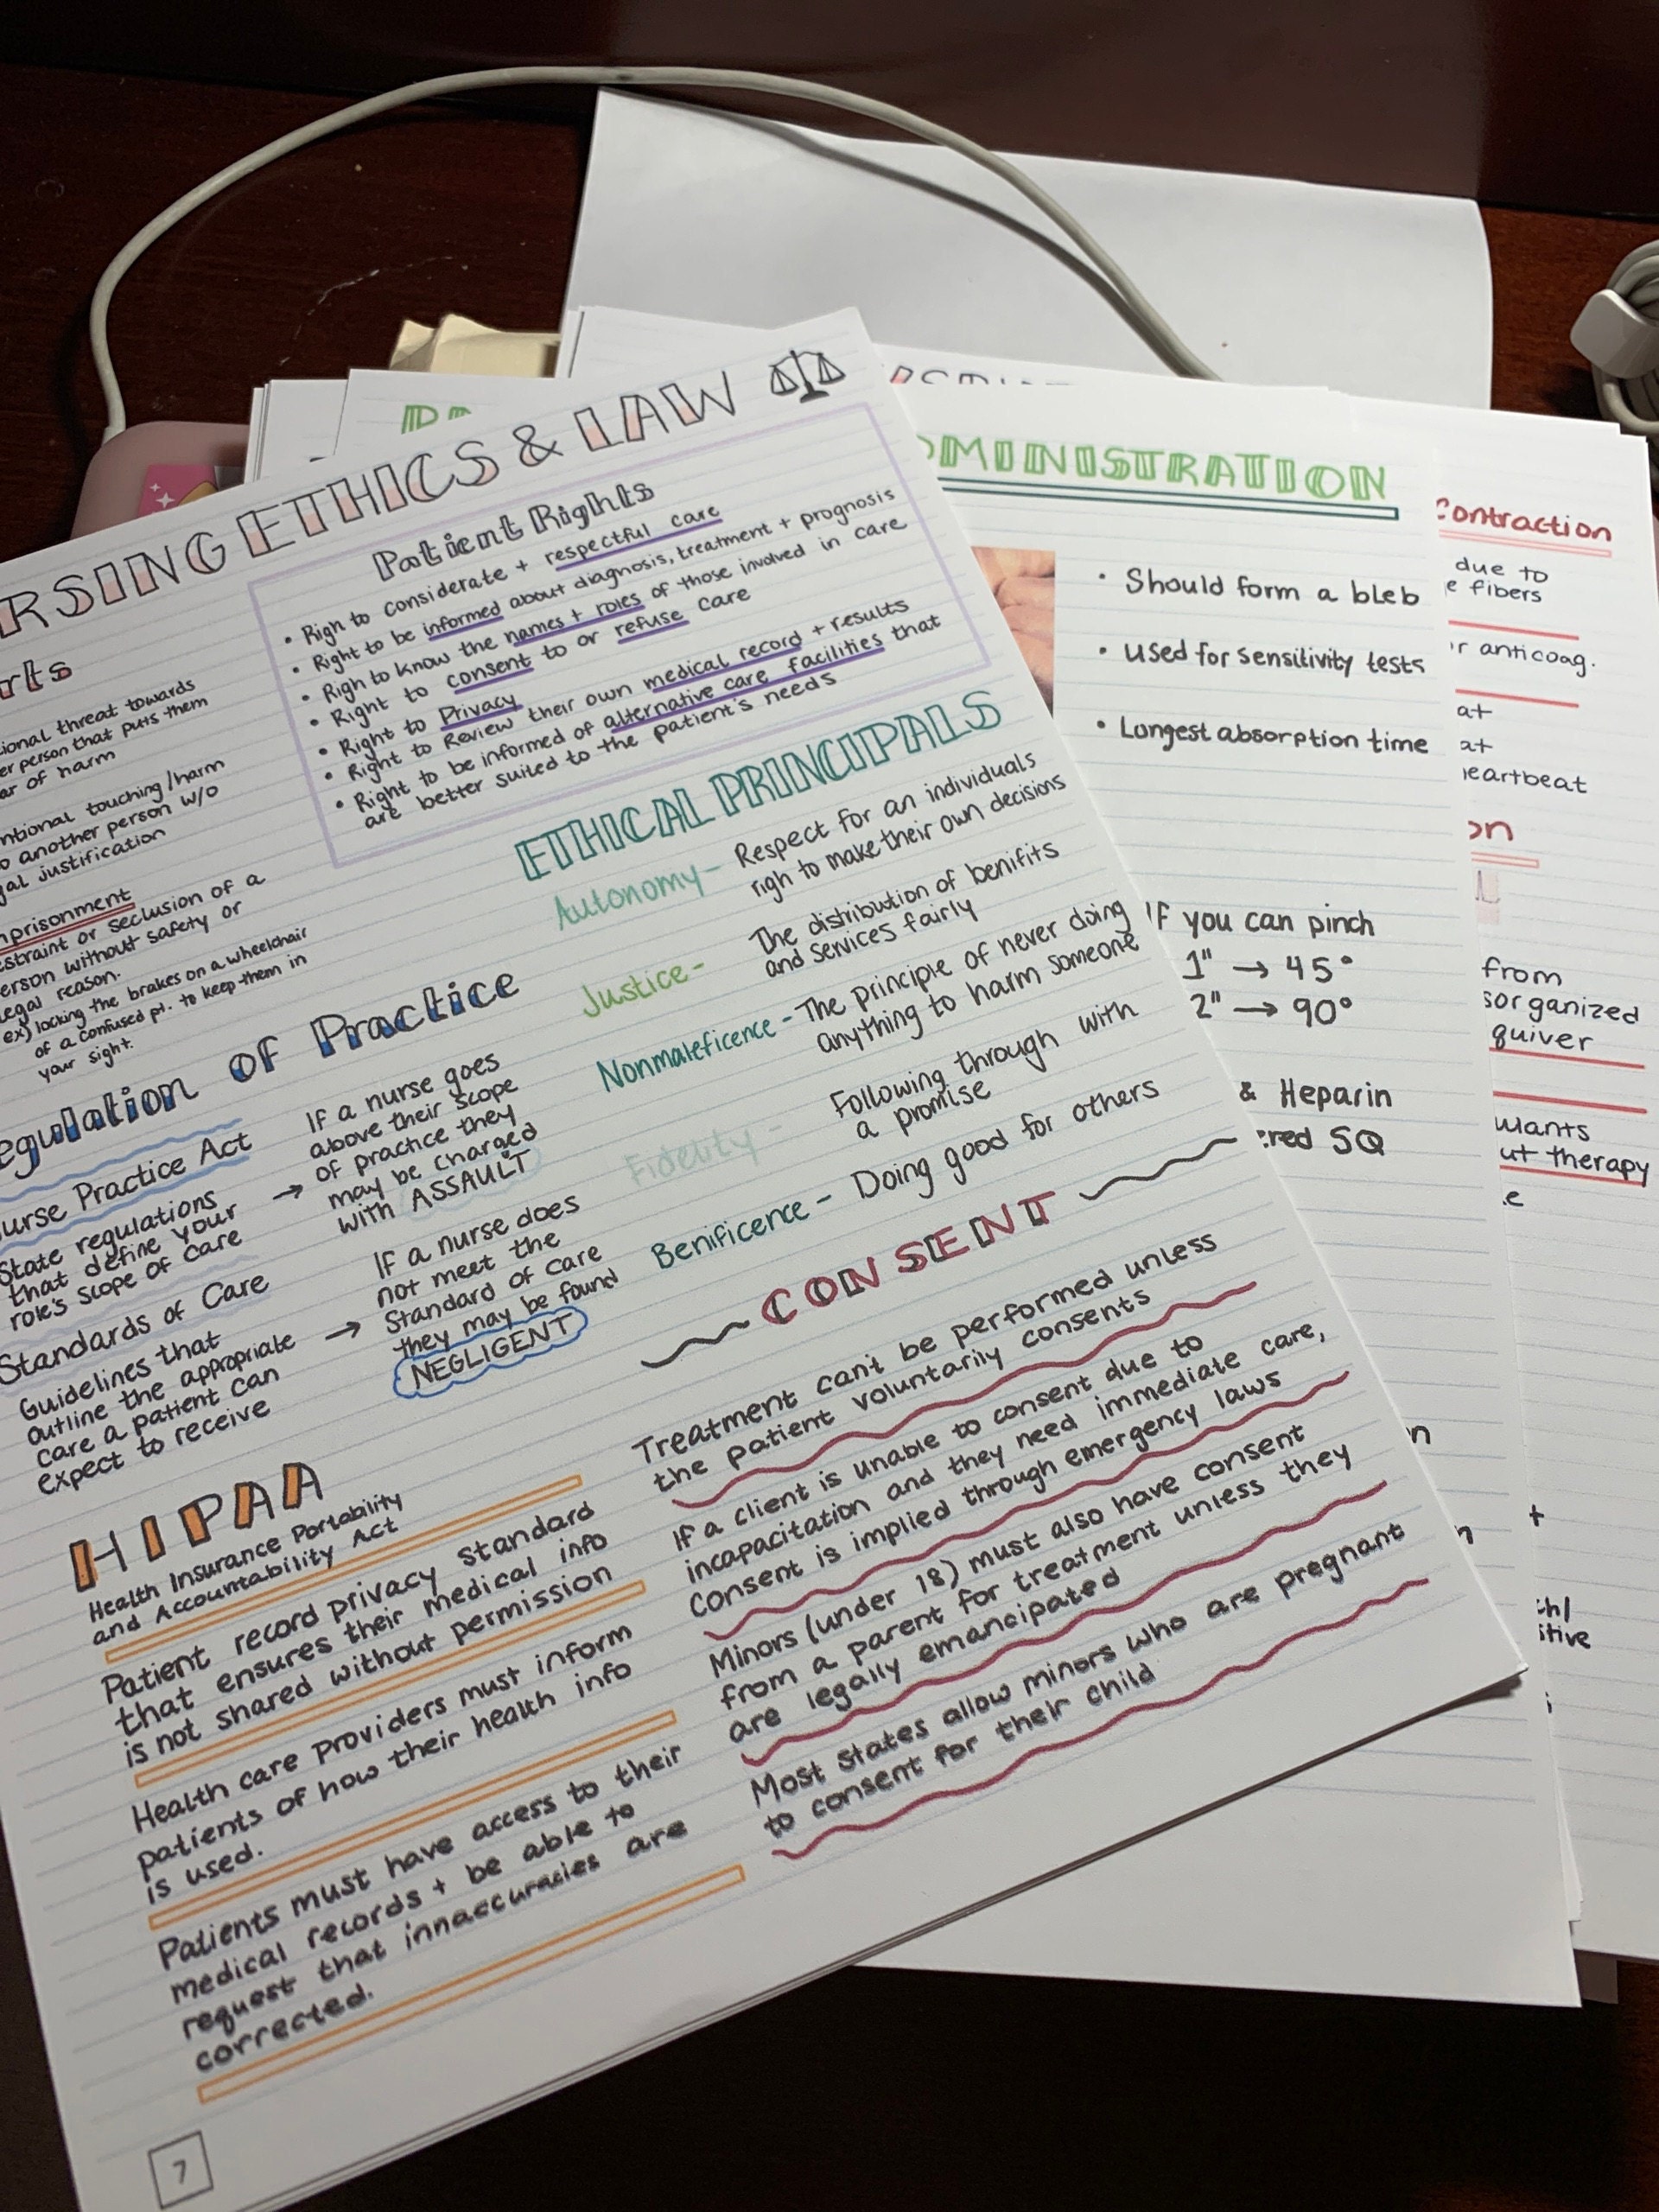 RSING ETHICS & LAW
rts
ional threat towards
er person that puts them
ar of harm
ntional touching/harm
o another person w/o
gal justification
mprisonment
estraint or seclusion of a
erson without safety or
legal reason.
ex) locking the brakes on a wheelchair
of a confused pt. to keep them in
your sight.
Patient Rights
• Righ to considerate + respectful care
• Right to be informed about diagnosis, treatment + prognosis
• Righ to know the names + roles of those involved in care
• Right to consent to or refuse care
• Right to Privacy
• Right to Review their own medical record + results
• Right to be informed of alternative care facilities that
are better suited to the patient's needs
egulation of Practice
urse Practice Act
State regulations
that define your
role's scope of care
→ If a nurse goes
above their scope
of practice they
may be charged
with ASSAULT
Standards of Care
Guidelines that
outline the appropriate
care a patient can
expect to receive
→ If a nurse does
not meet the
Standard of care
they may be found
NEGLIGENT
ETHICAL PRINCIPALS
Autonomy - Respect for an individuals
righ to make their own decisions
Justice - The distribution of benifits
and services fairly
Nonmaleficence - The principle of never doing
anything to harm someone
Fidelity Following through with
a promise
Benificence - Doing good for others
HIPAA
Health Insurance Portability
and Accountability Act
Patient record privacy standard
that ensures their medical info
is not shared without permission
Health care providers must inform
patients of how their health info
is used.
Patients must have access to their
medical records + be able to
request that innaccuracies are
corrected.
CONSENT
Treatment can't be performed unless
the patient voluntarily consents
If a client is unable to consent due to
incapacitation and they need immediate care,
consent is implied through emergency laws
Minors (under 18) must also have consent
from a parent for treatment unless they
are legally emancipated
Most states allow minors who are pregnant
to consent for their child
7
DMINISTRATION
• Should form a bleb
• used for sensitivity tests
• Longest absorption time
If you can pinch
1" → 45°
2" → 90°
& Heparin
ered SQ
Contraction
due to
e fibers
r anticoag.
at
at
heartbeat
on
from
sorganized
quiver
wants
ut therapy